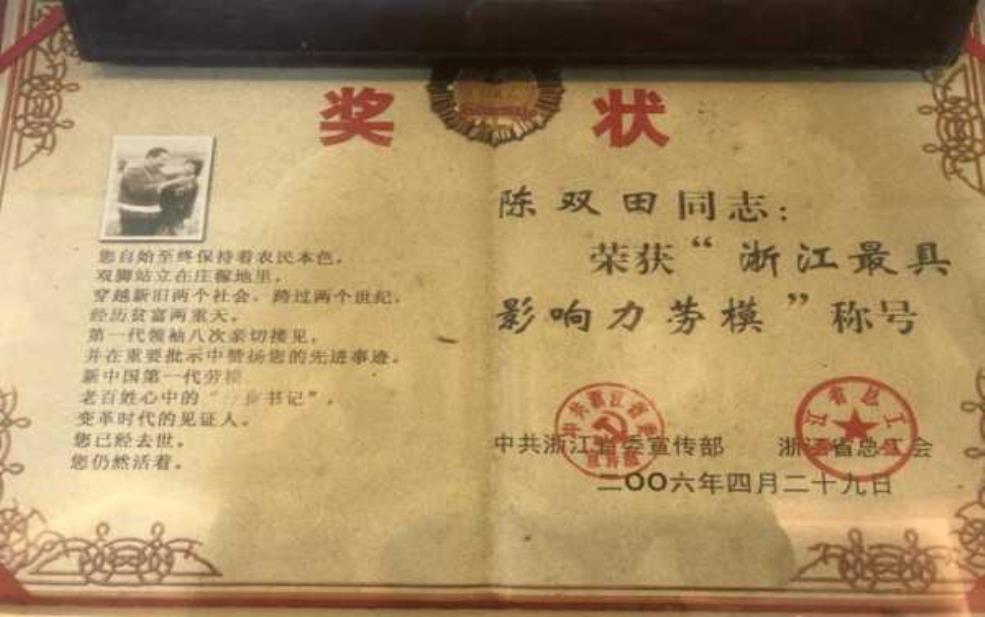 奖状
您自始至终保持着农民本色，
双脚站立在庄稼地里，
穿越新旧两个社会，跨过两个世纪，
经历贫富两重天。
第一代领袖八次亲切接见，
并在重要批示中赞扬您的先进事迹。
新中国第一代劳模
老百姓心中的“书记”，
变革时代的见证人。
您已经去世。
您仍然活着。
陈双田同志：
荣获“浙江最具
影响力劳模”称号
中共浙江省委宣传部 浙江省总工会
二〇〇六年四月二十九日